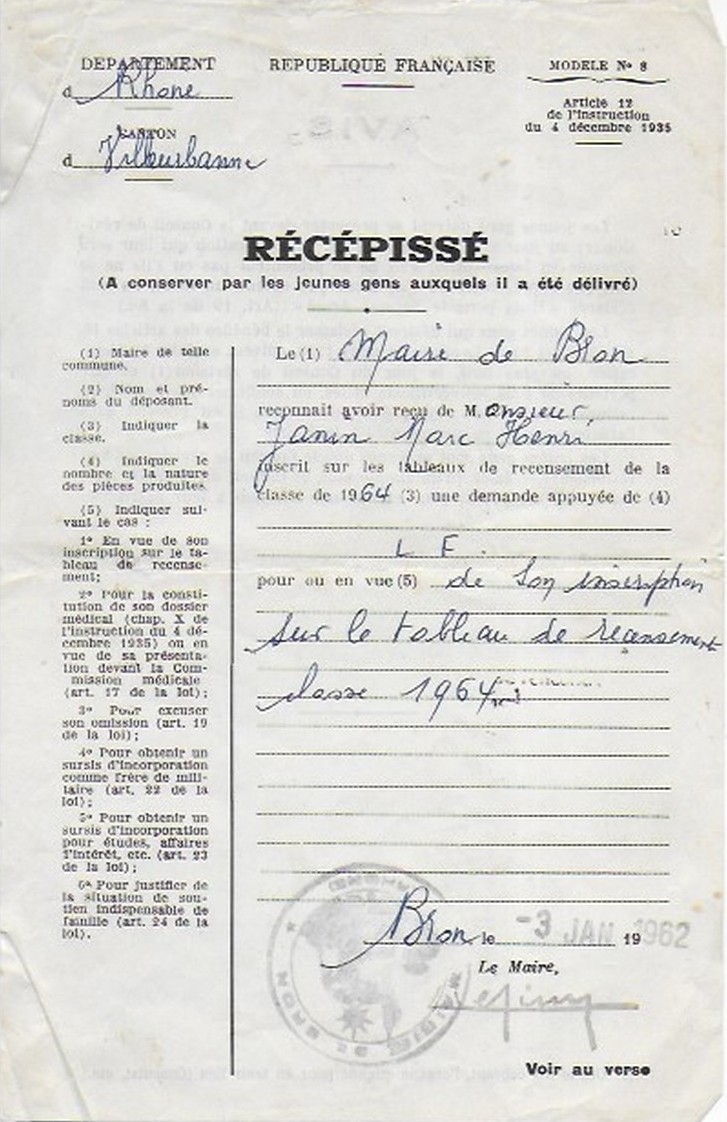 DEPARTEMENT
d Rhône
CANTON
d Villeurbanne
REPUBLIQUE FRANÇAISE
MODELE No 8
Article 12
de l'instruction
du 4 décembre 1935
RÉCÉPISSÉ
(A conserver par les jeunes gens auxquels il a été délivré)
(1) Maire de telle
commune.
(2) Nom et pré-
noms du déposant.
(3) Indiquer la
classe.
(4) Indiquer le
nombre et la nature
des pièces produites.
(5) Indiquer sui-
vant le cas :
1° En vue de son
inscription sur le ta-
bleau de recense-
ment;
2° Pour la consti-
tution de son dossier
médical (chap. X de
l'instruction du 4 dé-
cembre 1935) ou en
vue de sa présenta-
tion devant la Com-
mission médicale
(art. 17 de la loi);
3° Pour excuser
son omission (art. 19
de la loi);
4° Pour obtenir un
sursis d'incorporation
comme frère de mili-
taire (art. 22 de la
loi);
5° Pour obtenir un
sursis d'incorporation
pour études, affaires
l'intérêt, etc. (art. 23
de la loi);
6° Pour justifier de
la situation de sou-
tien indispensable de
famille (art. 24 de la
loi).
Le (1) Maire de Bron
reconnait avoir reçu de M. onsieur
Janin Marc Henri
inscrit sur les tableaux de recensement de la
classe de 1964 (3) une demande appuyée de (4)
L F.
pour ou en vue (5) de son inscription
sur le tableau de recensement
classe 1964
Bron le -3 JAN 1962
Le Maire,
MAIRIE DE BRON
Voir au verso